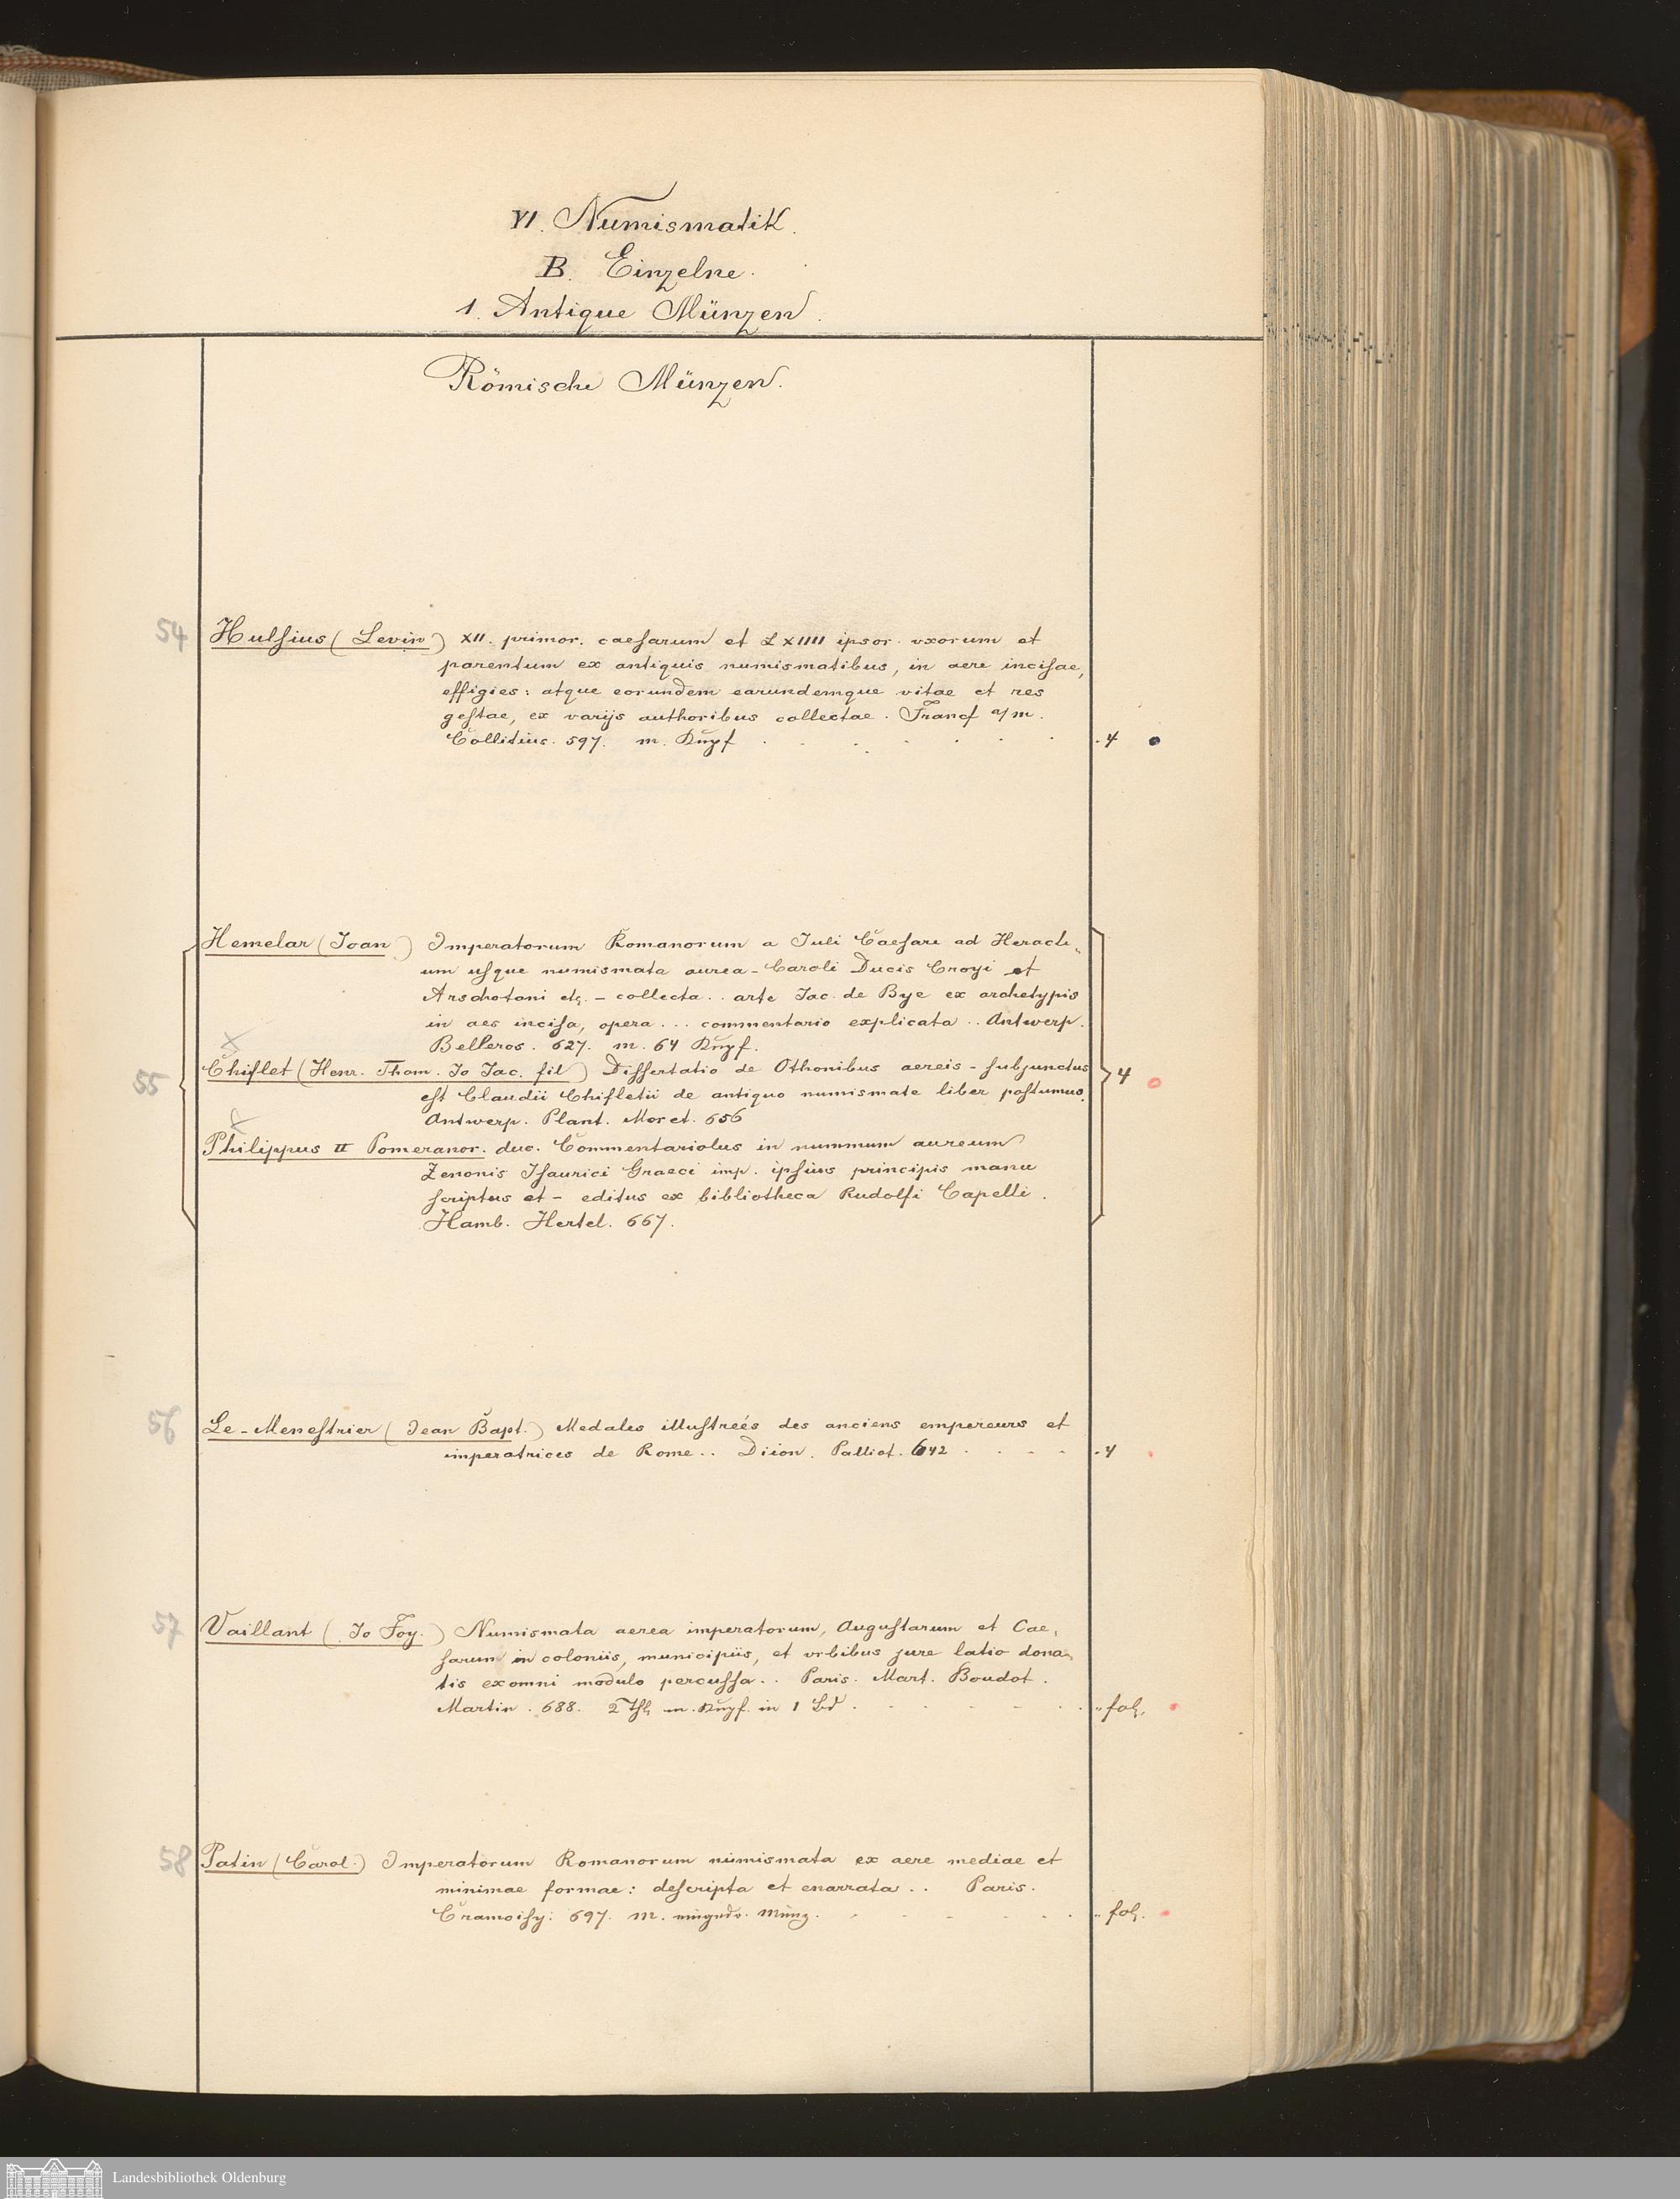 VI. Numismatik.
B. Einzelne.
1. Antique Münzen.
Römische Münzen.
54 Hulsius (Levin) XII. primor. caesarum et LXIIII ipsor. vxorum et
parentum ex antiquis numismatibus, in aere incisae,
effigies: atque eorundem earundemque vitae et res
gestae, ex varijs authoribus collectae. Francf a/m.
Collitius. 597. m. Kupf . . . . . . . 4
Hemelar (Joan) Imperatorum Romanorum a Juli Caesare ad Heracli-
um usque numismata aurea - Caroli Ducis Croyi et
Arschotani etc. - collecta.. arte Jac. de Bye ex archetypis
in aes incisa, opera... commentario explicata.. Antwerp.
Belleros. 627. m. 64 Kupf.
55 Chiflet (Henr. Thom. Jo Jac. fil) Dissertatio de Othonibus aereis - subjunctus 4
est Claudii Chifletii de antiquo numismate liber postumus.
Antwerp. Plant. Moret. 656
Philippus II Pomeranor. duc. Commentariolus in nummum aureum
Zenonis Isaurici Graeci imp. ipsius principis manu
scriptus et - editus ex bibliotheca Rudolfi Capelli.
Hamb. Hertel. 667.
56 Le-Menestrier (Jean Bapt.) Medales illustreés des anciens empereurs et
imperatrices de Rome.. Diion. Palliot. 642 . . . . 4
57 Vaillant (Jo Foy.) Numismata aerea imperatorum, Augustarum et Cae-
sarum in coloniis, municipiis, et vrbibus jure latio dona-
tis ex omni modulo percussa.. Paris. Mart. Boudot.
Martin. 688. 2 Thl m. Kupf. in 1 Bd . . . . . . fol.
58 Patin (Carol.) Imperatorum Romanorum numismata ex aere mediae et
minimae formae: descripta et enarrata.. Paris.
Cramoisy: 697. m. eingedr. Münz. . . . . . . fol.
Landesbibliothek Oldenburg